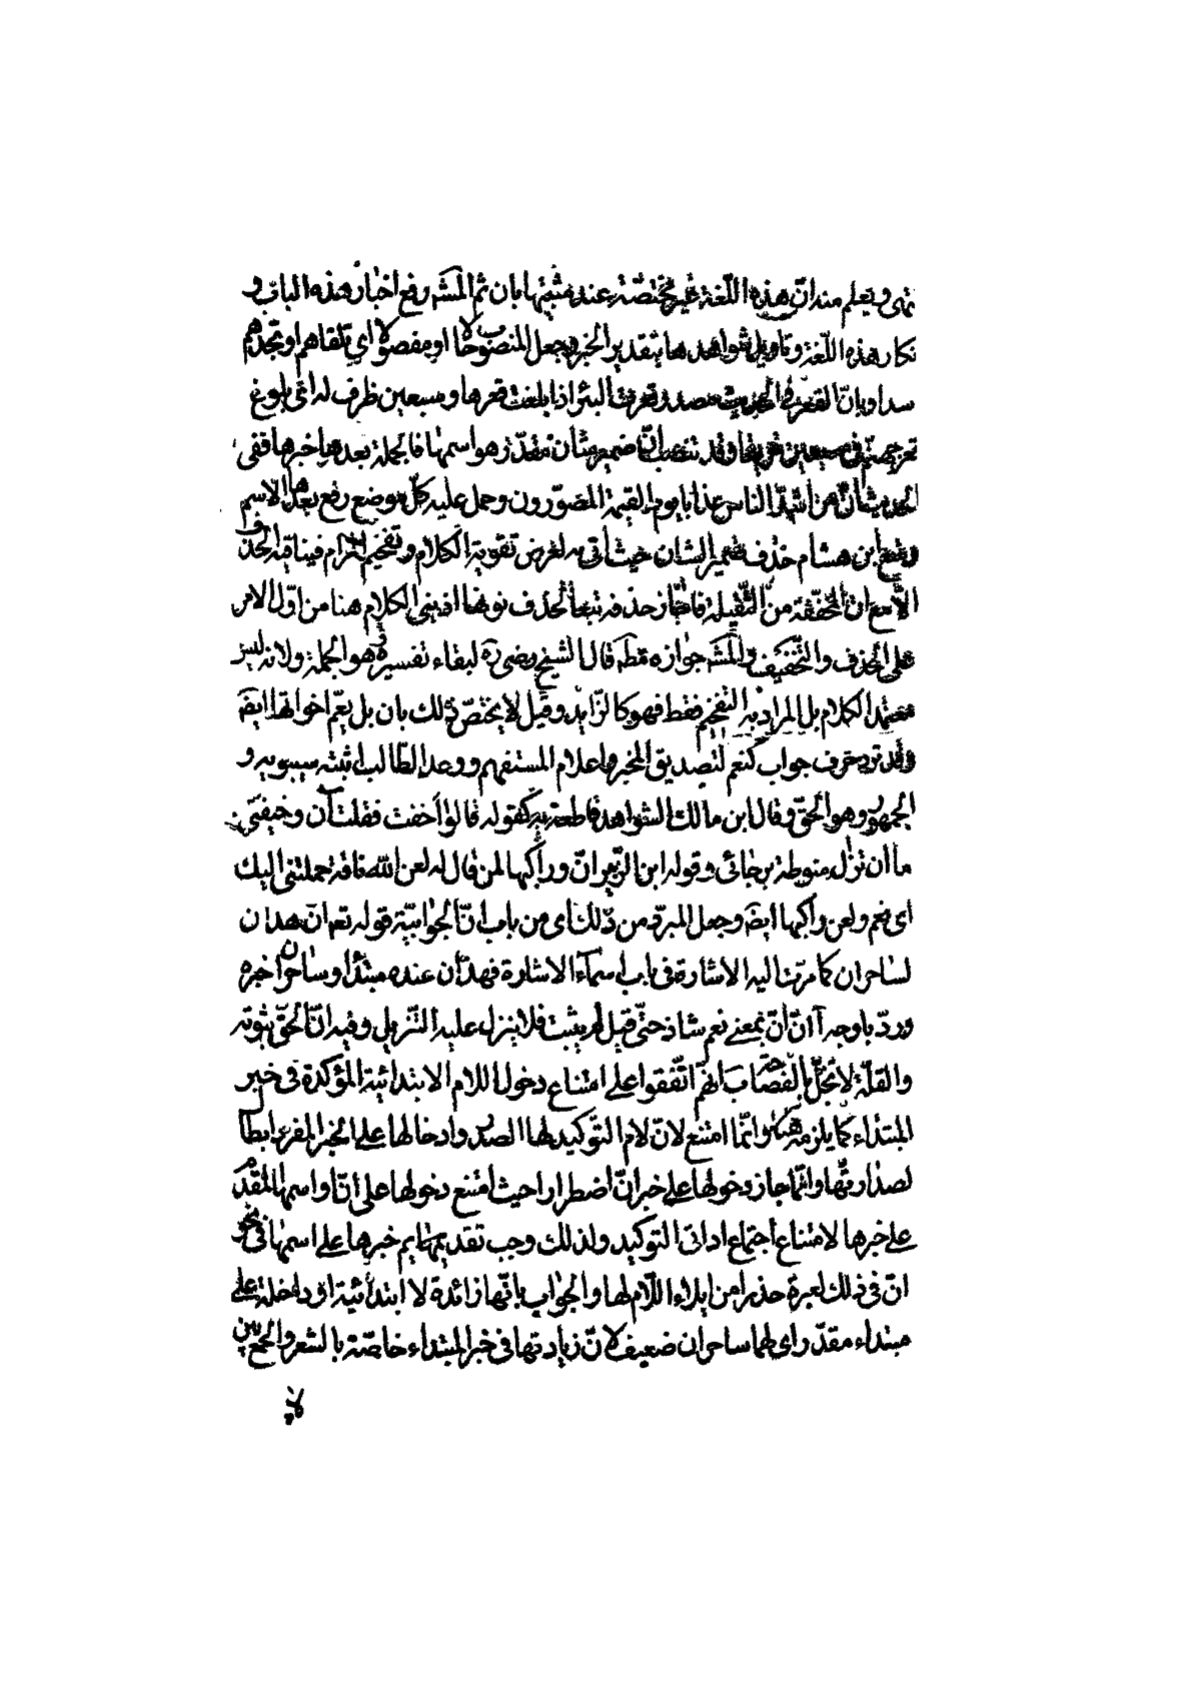 تهى ويعلم منه انّ هذه اللّغة غير مختصّة عند مثبتها بان ثم المشه رفع اخبار هذه الباب و
نكار هذه اللّغة وتاويل شواهدها بتقدير الخبر وجعل المنصوب حالا او مفصولا اي تلقاهم او تجدهم
سدا وبانّ القعر في الحديث مصدر قعرت البئر اذا بلغت قعرها وسبعين ظرف له اى بلوغ
قعر جهنّم في سبعين خريفا وقد تنصب انّ ضمير شان مقدّر هو اسمها فالجملة بعدها خبرها ففى
الحديث انّ من اشدّ الناس عذابا يوم القيمة المصوّرون وحمل عليه كلّ موضع رفع بعدها الاسم
ومنع ابن هشام حذف ضمير الشان حيث اتى به لغرض تقوية الكلام وتفخيم المرام فينافيه الحذف
الّا مع ان المخفّفة من الثّقيلة فاجاز حذفه تبعا لحذف نونها اذ بنى الكلام هنا من اوّل الامر
على الحذف والتّخفيف والمشه جوازه مطه قال الشيخ رضى ره لبقاء تفسيره وهو الجملة ولانه ليس
معتمد الكلام بل المراد به التفخيم فقط فهو كالزّايد وقيل لا يختصّ ذلك بان بل يعمّ اخواتها ايضَ
وقد ترد حرف جواب كنعم لتصديق المخبر واعلام المستفهم ووعد الطّالب اثبته سيبويه و
الجمهور وهو الحقّ وقال ابن مالك الشواهد قاطعة به كقوله قالوا اخفت فقلت انّ وخيفتى
ما ان تزال منوطة برجائى وقوله ابن الزّبير انّ وراكبها لمن قال له لعن الله ناقة حملتنى اليك
اى نعم ولعن راكبها ايضَ وجعل المبرّد من ذلك اى من باب انّ الجوابيّة قوله تعه انّ هذان
لساحران كما مرّت اليه الاشارة فى باب اسمآء الاشارة فهذان عنده مبتدأ وساحران خبره
وردّ باوجه آ انّ انّ بمعنى نعم شاذ حتّى قيل لم يثبت فلا ينزل عليه التّنزيل وفيه انّ الحقّ ثبوته
والقلّة لا تخلّ بالفصاحة بَ انّهم اتّفقوا على امتناع دخول اللام الابتدائيّة المؤكدة فى خبر
المبتداء كما يلزمه هنا وانّما امتنع لانّ لام التّوكيد لها الصدر وادخالها على الخبر المفرد ابطال
لصدارتها وانّما جاز دخولها على خبر انّ اضطرارا حيث امتنع دخولها على انّ او اسمها المقدّم
على خبرها لامتناع اجتماع اداتى التوكيد ولذلك وجب تقديمها ايم خبرها على اسمها فى نحو
انّ فى ذلك لعبرة حذرا من ايلاء اللّام لها والجواب بانّها زائدة لا ابتدائيّة او داخلة على
مبتداء مقدّر اى لهما ساحران ضعيف لانّ زيادتها فى خبر المبتداء خاصّة بالشعر والجمع بين
لام